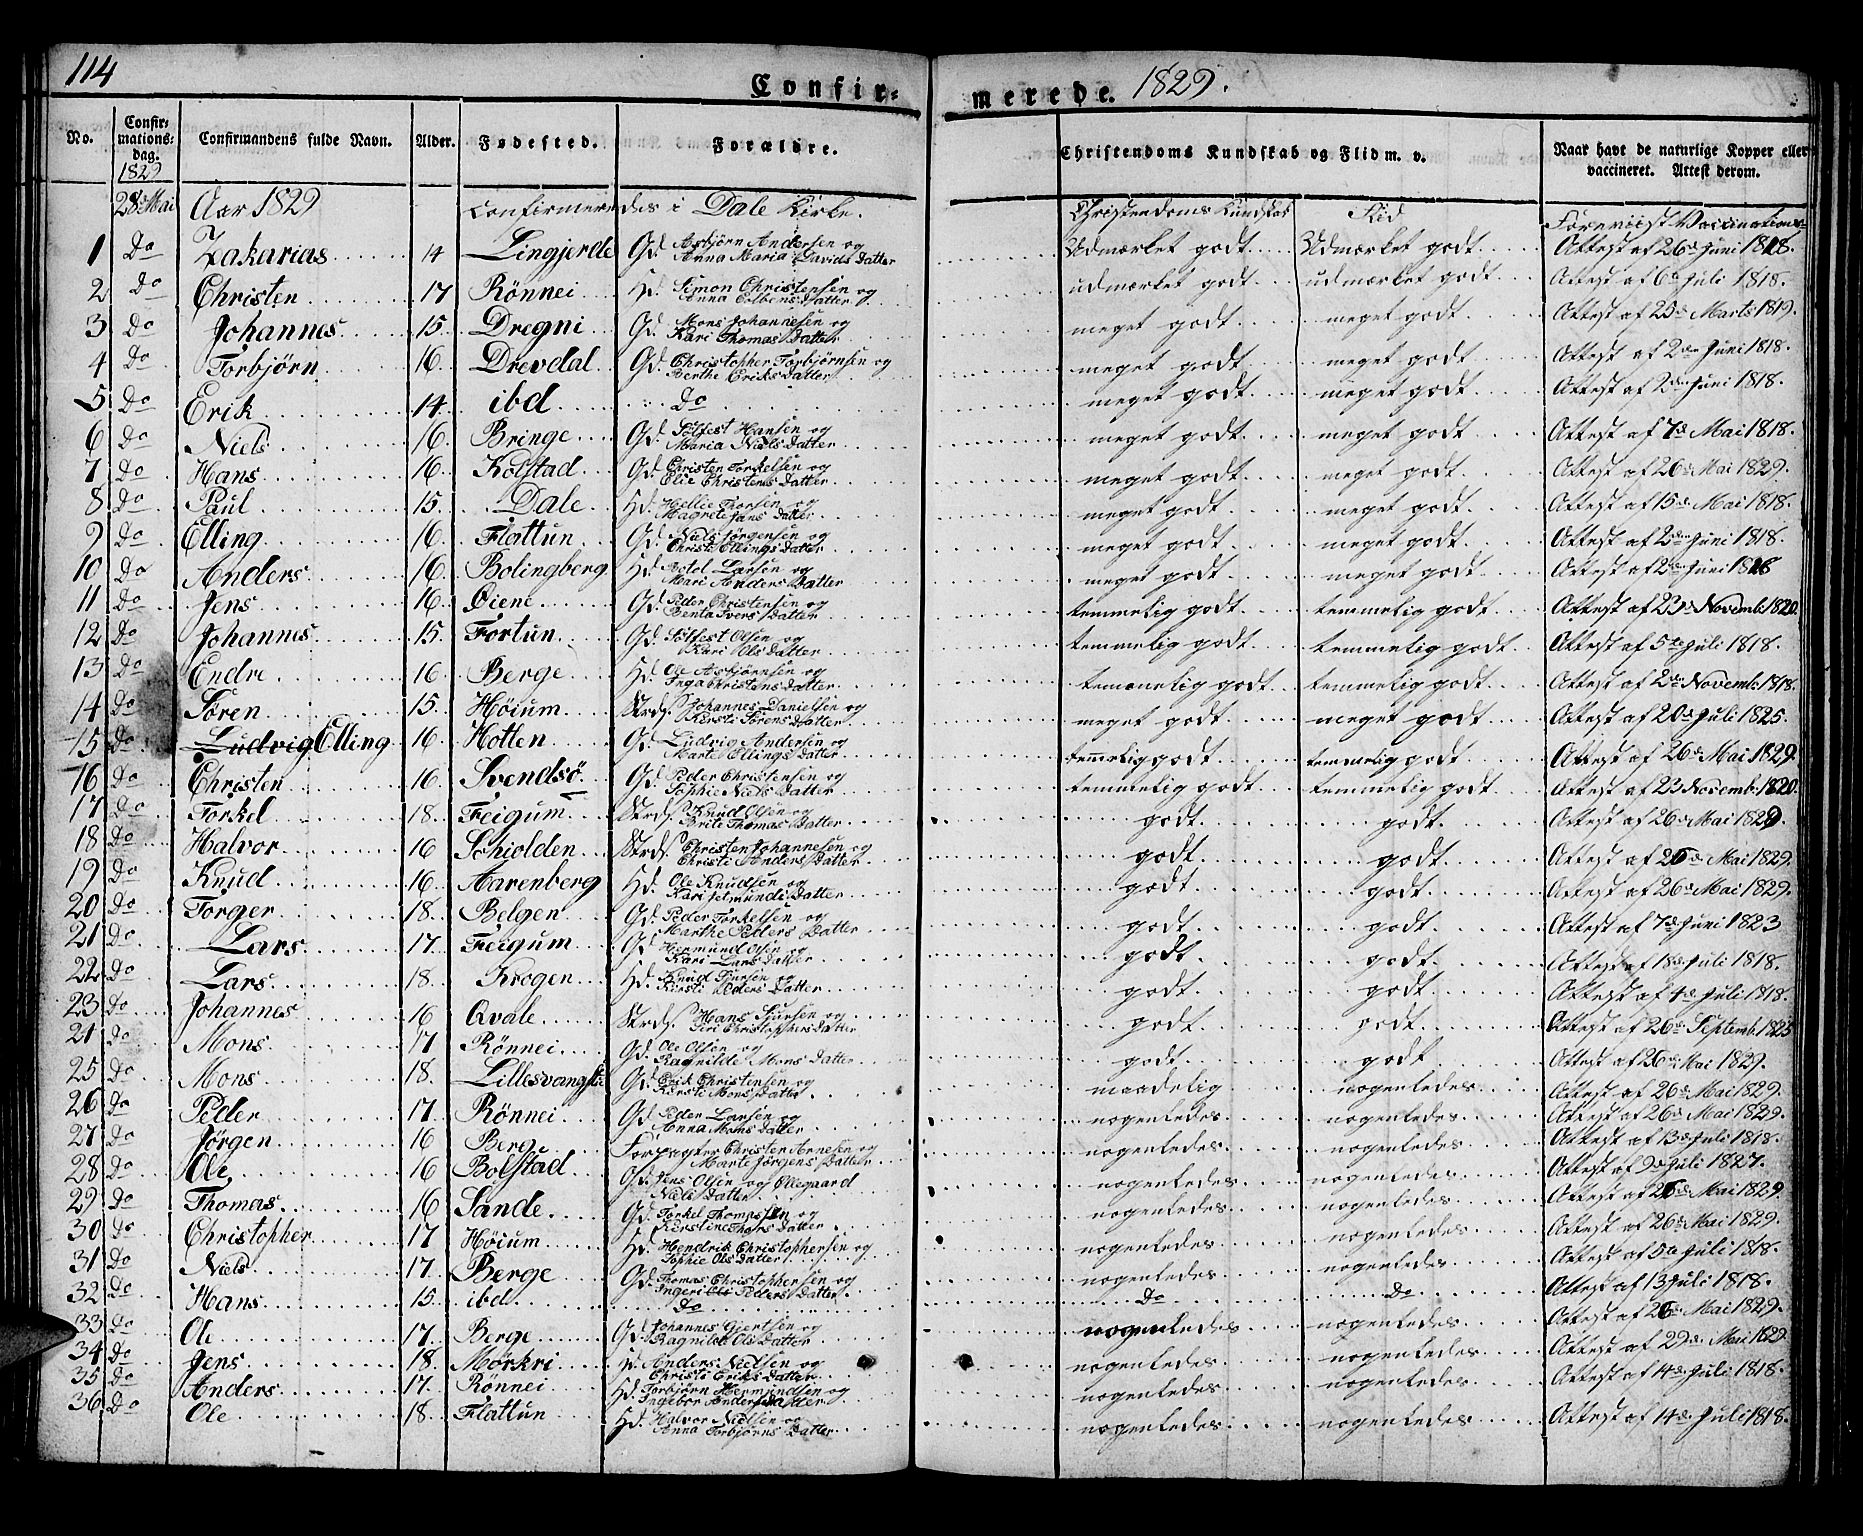 114
Confir-
merede. 1829.
No. Confirmations-dag. 1829 Confirmandens fulde Navn. Alder. Fødested. Forældre. Christendoms Kundskab og Flid m. v. Naar havt de naturlige Kopper eller vaccineret. Attest derom.
28de Mai Aar 1829 Confirmeredes i Dale Kirke. Christendoms Kundskab Flid Foreviist Vaccinations
1 Do Zakarias 14 Lingjerde Gd. Asbjørn Andersen og Anna Maria Davids Datter Udmærket godt Udmærket godt Attest af 26de Juni 1818.
2 Do Christen 17 Rönnei Hd. Simon Christensen og Anna Colbens Datter udmærket godt udmærket godt Attest af 6te Juli 1818.
3 Do Johannes 15. Dregni Gd. Mons Johannesen og Kari Thomas Datter meget godt meget godt Attest af 25de Marts 1819.
4 Do Torbjörn 16 Drevdal Gd. Christopher Torbjörnsen og Berthe Eriks Datter meget godt meget godt Attest af 2den Juni 1818.
5 Do Erik 14 ibd Do meget godt meget godt Attest af 2den Juni 1818.
6 Do Niels 16. Bringe Gd. Sölfest Hansen og Maria Niels Datter meget godt meget godt Attest af 7de Mai 1818.
7 Do Hans 16 Kolstad Gd. Christen Torkelsen og Elie Christens Datter meget godt meget godt Attest af 26de Mai 1829.
8 Do Paul 15. Dale Hd. Hellie Thorsen og Magrete Jens Datter meget godt meget godt Attest af 15de Mai 1818.
9 Do Elling 16 Flattun Gd. Niels Jörgensen og Christi Ellings Datter meget godt meget godt Attest af 2den Juni 1818.
10 Do Anders 16 Bolingberg Hd. Botol Larsen og Mari Anders Datter meget godt meget godt Attest af 2den Juni 1818
11 Do Jens 16 Øiene Gd. Peder Christensen og Benta Ivers Datter temmelig godt temmelig godt Attest af 23de Novemb: 1820.
12 Do Johannes 15. Fortun Gd. Sölfest Olsen og Kari Ols Datter temmelig godt temmelig godt Attest af 5te Juli 1818.
13 Do Endre 16 Berge Hd. Ole Asbjørnsen og Inga Christens Datter temmelig godt temmelig godt Attest af 2den Novemb: 1818.
14 Do Sören 15. Höium Strds. Johannes Danielsen og Kirsti Sörens Datter meget godt meget godt Attest af 20de Juli 1825.
15 Do Ludvig Elling 16 Hotten Gd. Ludvig Andersen og Marte Ellings Datter temmelig godt temmelig godt Attest af 26de Mai 1829.
16 Do Christen 16 Svendsö Gd. Peder Christensen og Sophie Niels Datter temmelig godt temmelig godt Attest af 23 Novemb: 1820.
17 Do Torkel 18. Feigum Strds. Knud Olsen og Brite Thomas Datter godt godt. Attest af 26de Mai 1829.
18 Do Halvor 16 Schiolden Strds. Christen Johannesen og Christi Anders Datter godt godt. Attest af 26de Mai 1829.
19 Do Knud 16 Aarenberg Hd. Ole Knudsen og Kari Jetmunds Datter godt godt. Attest af 26de Mai 1829.
20 Do Torger 18. Bolgen Gd. Peder Torkelsen og Marthe Peders Datter godt godt. Attest af 7de Juni 1823
21 Do Lars 17. Feigum Gd. Hermund Olsen og Kari Lars Datter godt godt. Attest af 18de Juli 1818.
22 Do Lars 18. Krogen Hd. Knud Sjursen og Kirsti Peders Datter godt. godt Attest af 4de Juli 1818.
23 Do Johannes 16 Qvale Strds. Hans Sjursen og Siri Christophers Datter godt godt. Attest af 26de Septemb: 1825
24 Do Mons 17 Rönnei Gd. Ole Olsen og Ragnilde Mons Datter godt. godt Attest af 26de Mai 1829.
25 Do Mons 18. Lillesvangstu Gd. Erik Christensen og Kirsti Mons Datter maadelig nogenledes Attest af 26de Mai 1829.
26 Do Peder 17 Rönnei Gd. Peder Larsen og Anna Mons Datter nogenledes nogenledes Attest af 26de Mai 1829.
27 Do Jörgen 16 Berge Forpagter Christen Arnesen og Marte Jörgens Datter nogenledes nogenledes Attest af 13de Juli 1818.
28 Do Ole 16 Bolstad Gd. Jens Olsen og Ollegaard Niels Datter nogenledes nogenledes Attest af 9de Juli 1827.
29 Do Thomas 16 Sande Gd. Torkel Thomassen og Kirstine Thors Datter nogenledes nogenledes Attest af 26de Mai 1829
30 Do Christopher 17 Höium Hd. Hendrik Christophersen og Sophie Ols Datter nogenledes nogenledes Attest af 26de Mai 1829.
31 Do Niels 17. Berge Gd. Thomas Christophersen og Ingeri Peders Datter nogenledes nogenledes Attest af 5te Juli 1818.
32 Do Hans 15. ibd Do Do Do Attest af 13 Juli 1818.
33 Do Ole 17. Berge Gd. Johannes Gjertsen og Ragnilde Ols Datter nogenledes nogenledes Attest af 26de Mai 1829.
34 Do Jens 18. Mörkri Hd. Anders Nielsen og Christi Eriks Datter nogenledes nogenledes Attest af 29de Mai 1829.
35 Do Anders 17. Rönnei Hd. Torbjörn Hermundsen og Ingebor Anders Datter nogenledes nogenledes Attest af 14de Juli 1818.
36 Do Ole 18. Flattun Hd. Halvor Nielsen og Anna Torbjörns Datter nogenledes nogenledes Attest af 14de Juli 1818.